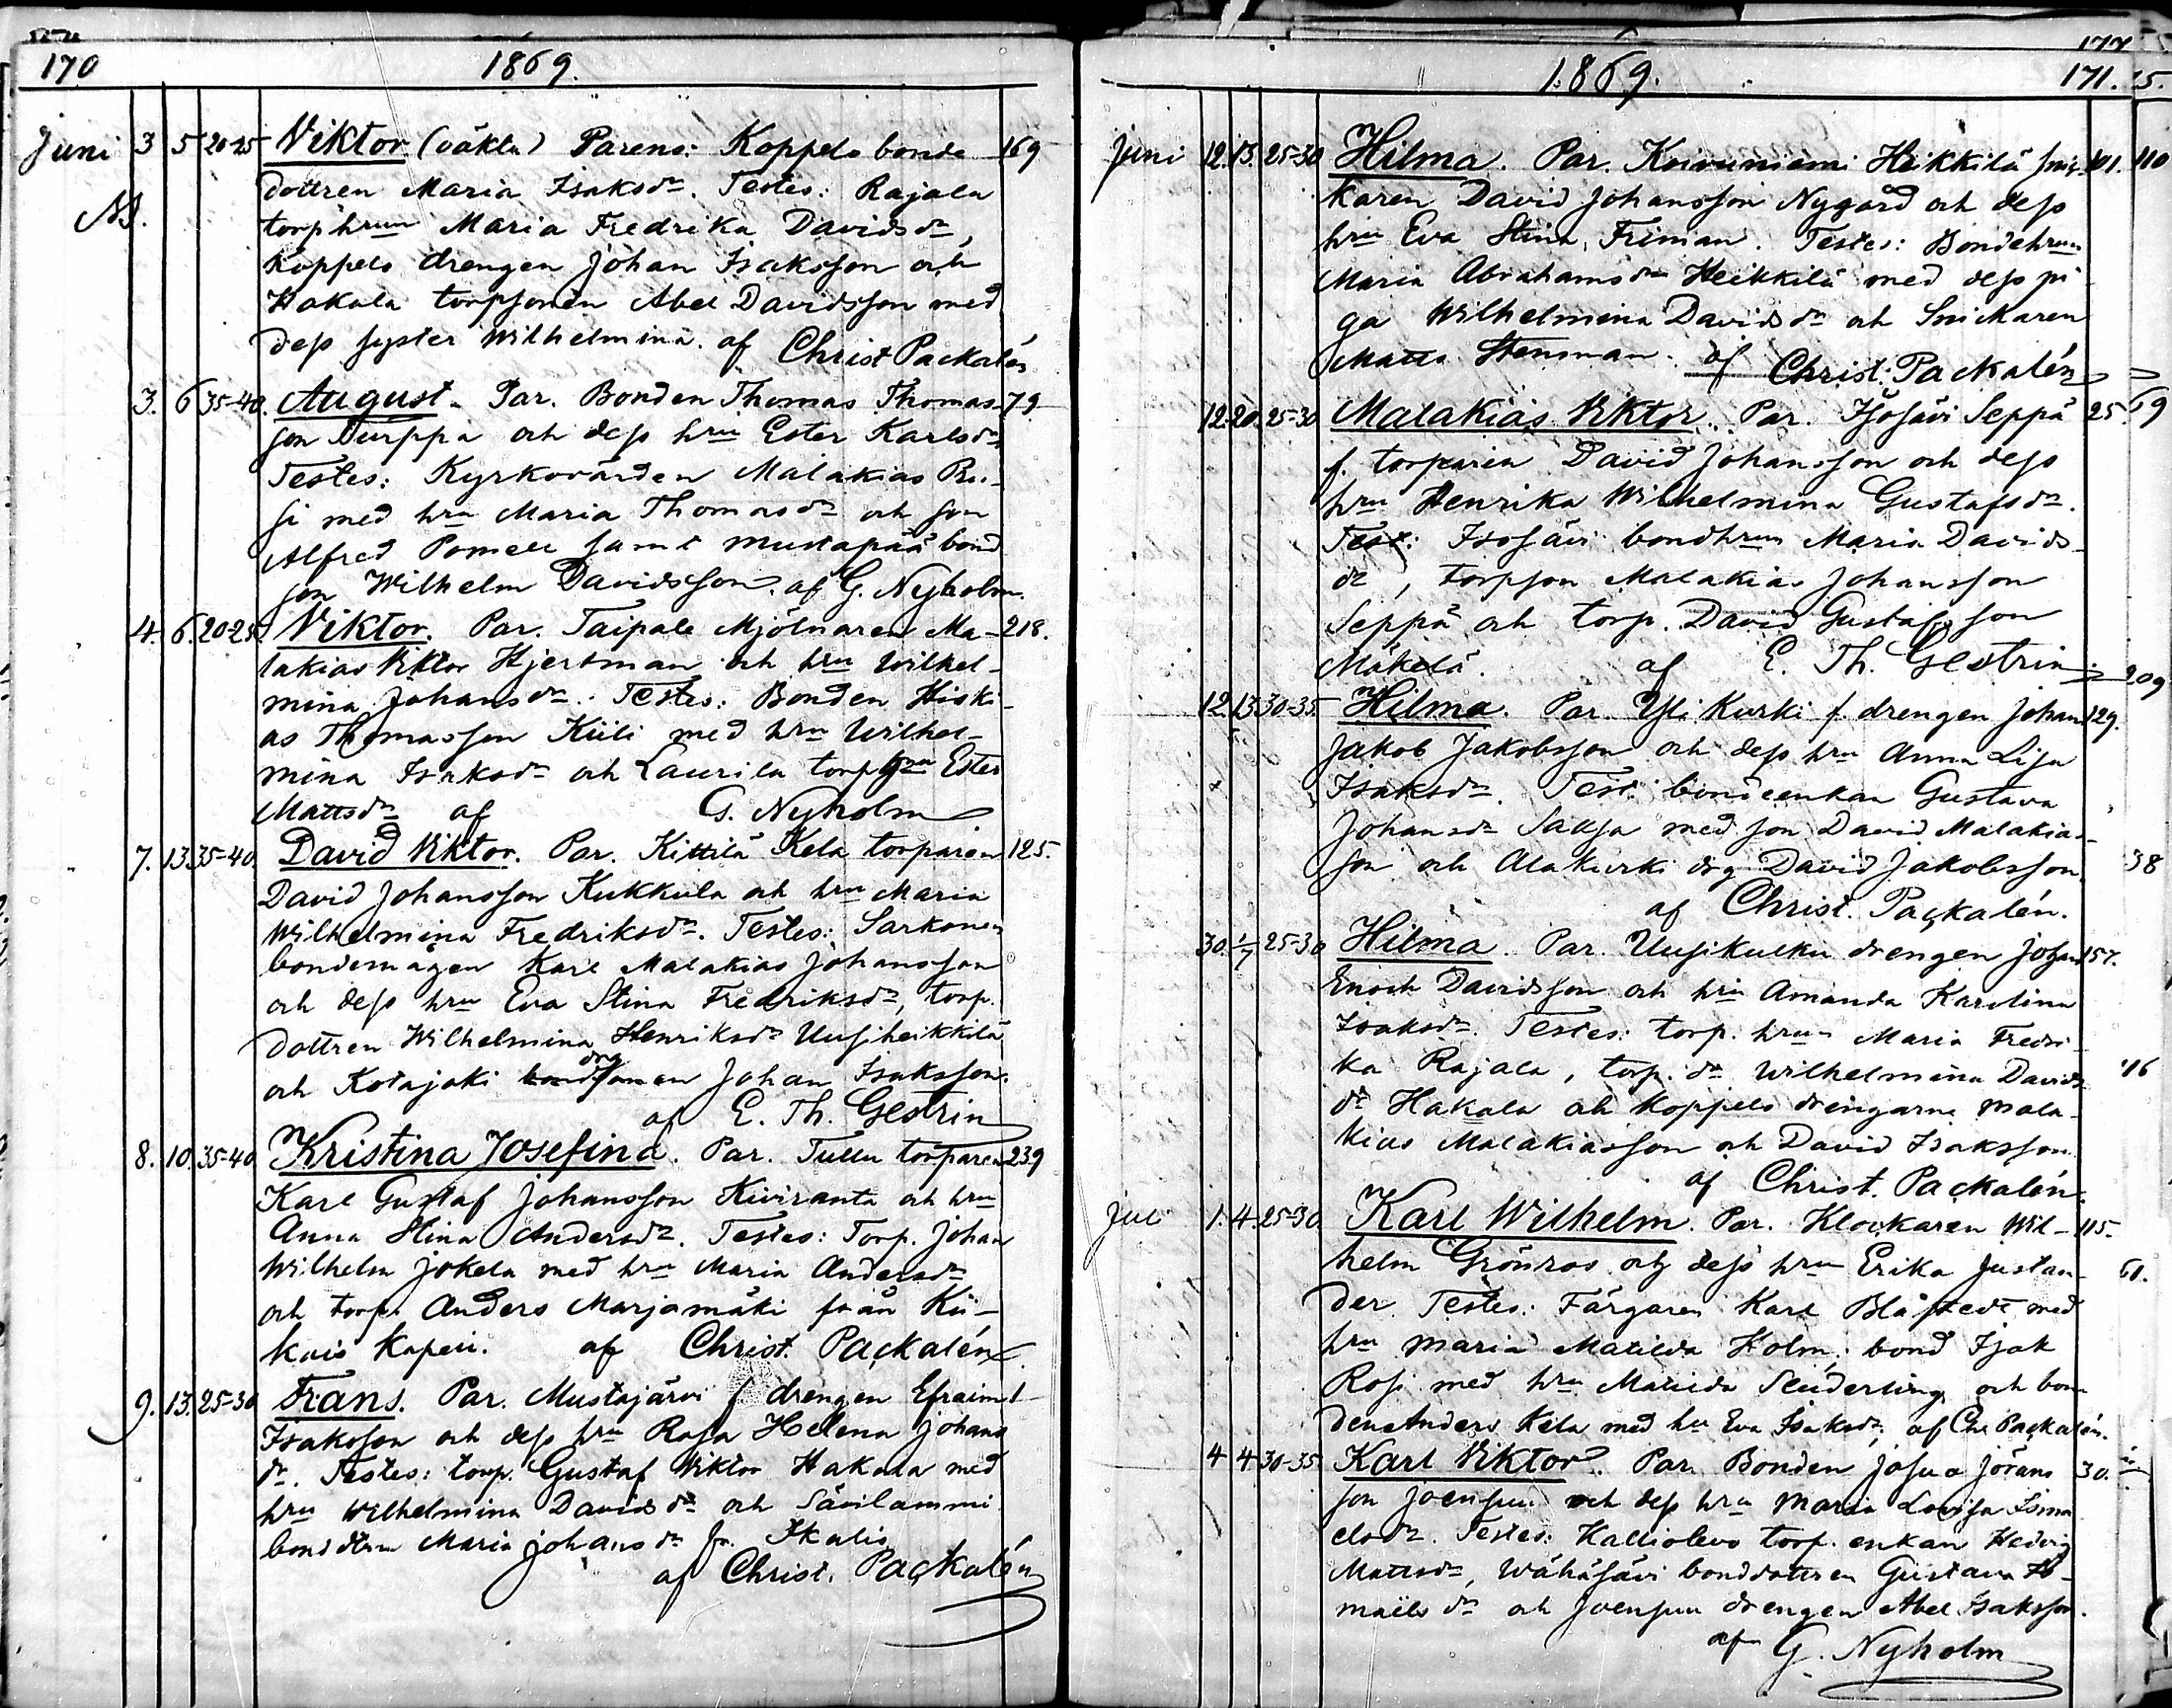 170 1869.
Juni 3 5 20-25 Viktor (oäkta) Parens: Koppelo bonde 169
dottren Maria Isaksdr. Testes: Rajala
torphrun Maria Fredrika Davidsdr,
Koppelo drengen Johan Isaksson och
Hakala torpsonen Abel Davidsson med
dess syster Wilhelmina. af Christ Packalén
3. 6 35-40. August. Par. Bonden Thomas Thomas- 79
son Nurppa och dess hru Ester Karlsdr
Testes: Kyrkovärden Malakias
med hru Maria Thomasdr och son
Alfred Pomell samt Mustapää bond
son Wilhelm Davidsson. af G. Nyholm.
4. 6. 20-25. Viktor. Par. Taipale Mjölnaren Ma- 218.
lakias Viktor Hjertman och hru Wilhel-
mina Johansdr. Testes: Bonden Hiski-
as Thomasson Kiili med hru Wilhel-
mina Isaksdr och Laurila torphru Ester
Mattsdr af G. Nyholm
7. 13 35-40. David Viktor. Par. Kittilä Kela torparen 125.
David Johansson Kukkula och hru Maria
Wilhelmina Fredriksdr. Testes: Sarkonen
bondemågen Karl Malakias Johansson
och dess hru Eva Stina Fredriksdr, torp.
dottren Wilhelmina Henriksdr Uusiheikkilä
drg
och Kotajoki bondsonen Johan Isaksson.
af E. Th. Gestrin
8. 10. 35-40 Kristina Josefina. Par. Tullu torparen 239
Karl Gustaf Johansson Kiviranta och hru
Anna Stina Andersdr. Testes: Torp. Johan
Wilhelm Jokela med hru Maria Andersdr
och torp. Anders Marjamäki från Kii-
kois Kapell. af Christ. Packalén.
9. 13. 25-30 Frans. Par. Mustajärvi f drengen Efraim 1
Isaksson och dess hru Rosa Helena Johans
dr. Testes: torp. Gustaf Viktor Hakala med
hru Wilhelmina Davidsdr och Sävilammi
bonddttrn Maria Johansdr fr. Ikalis
af Christ. Packalén
1869. 171.
Juni 12. 13. 25-30 Hilma. Par. Koivuniemi Heikkilä snic- 101. 110
karen David Johansson Nygård och dess
hru Eva Stina Friman. Testes: Bondehrun
Maria Abrahamsdr Heikkilä med dess pi
ga Wilhelmina Davidsdr och Snickaren
Matts Stensman. af Christ. Packalén
12. 20. 25-30 Malakias Viktor. Par. Isosävi Seppä 25. 69
f. torparen David Johansson och dess
hru Henrika Wilhelmina Gustafsdr.
Test: Isosävi bondhrun Maria Davids-
dr, torpson Malakias Johansson
Seppä och torp. David Gustafsson
Mäkelä. af E. Th. Gestrin 209
12. 13. 30-35. Hilma. Par. Yli Kurki f. drengen Johan 129.
Jakob Jakobsson och dess hru Anna Lisa
Isaksdr. Test. bondeenkan Gustava
Johansdr Saksa med son David Malakias-
son och Alakurki drg David Jakobsson. 38
af Christ. Packalén.
30. 1/7 25-30 Hilma. Par. Uusikulku drengen Johan 157.
Enoch Davidsson och hru Amanda Karolina
Isaksdr. Testes: torp. hrun Maria Fredri-
ka Rajala, torp. dr Wilhelmina Davids 16
dr Hakala och Koppelo drengarne Mala-
kias Malakiasson och David Isaksson
af Christ. Packalén.
Juli 1. 4. 25-30. Karl Wilhelm. Par. Klockaren Wil- 115.
helm Grönroos och dess hru Erika Justan- 61.
der. Testes: Färgaren Karl Blåfield med
hru Maria Matilda Holm, bond Isak
Rosi med hru Matilda Sluderling och bon-
den Anders Kela med hru Eva Isaksdr, af Chr Packalén.
4 4. 30-35. Karl Viktor. Par. Bonden Josua Jörans 30.
son Joensuu och dess hru Maria Lovisa Isma
elsdr. Testes: Kalliolevo torp. enkan Hedvig
Mattsdr, Wähäsävi bonddottren Gustava Is-
maëlsdr och Joensuu drengen Abel Isaksson.
af G. Nyholm